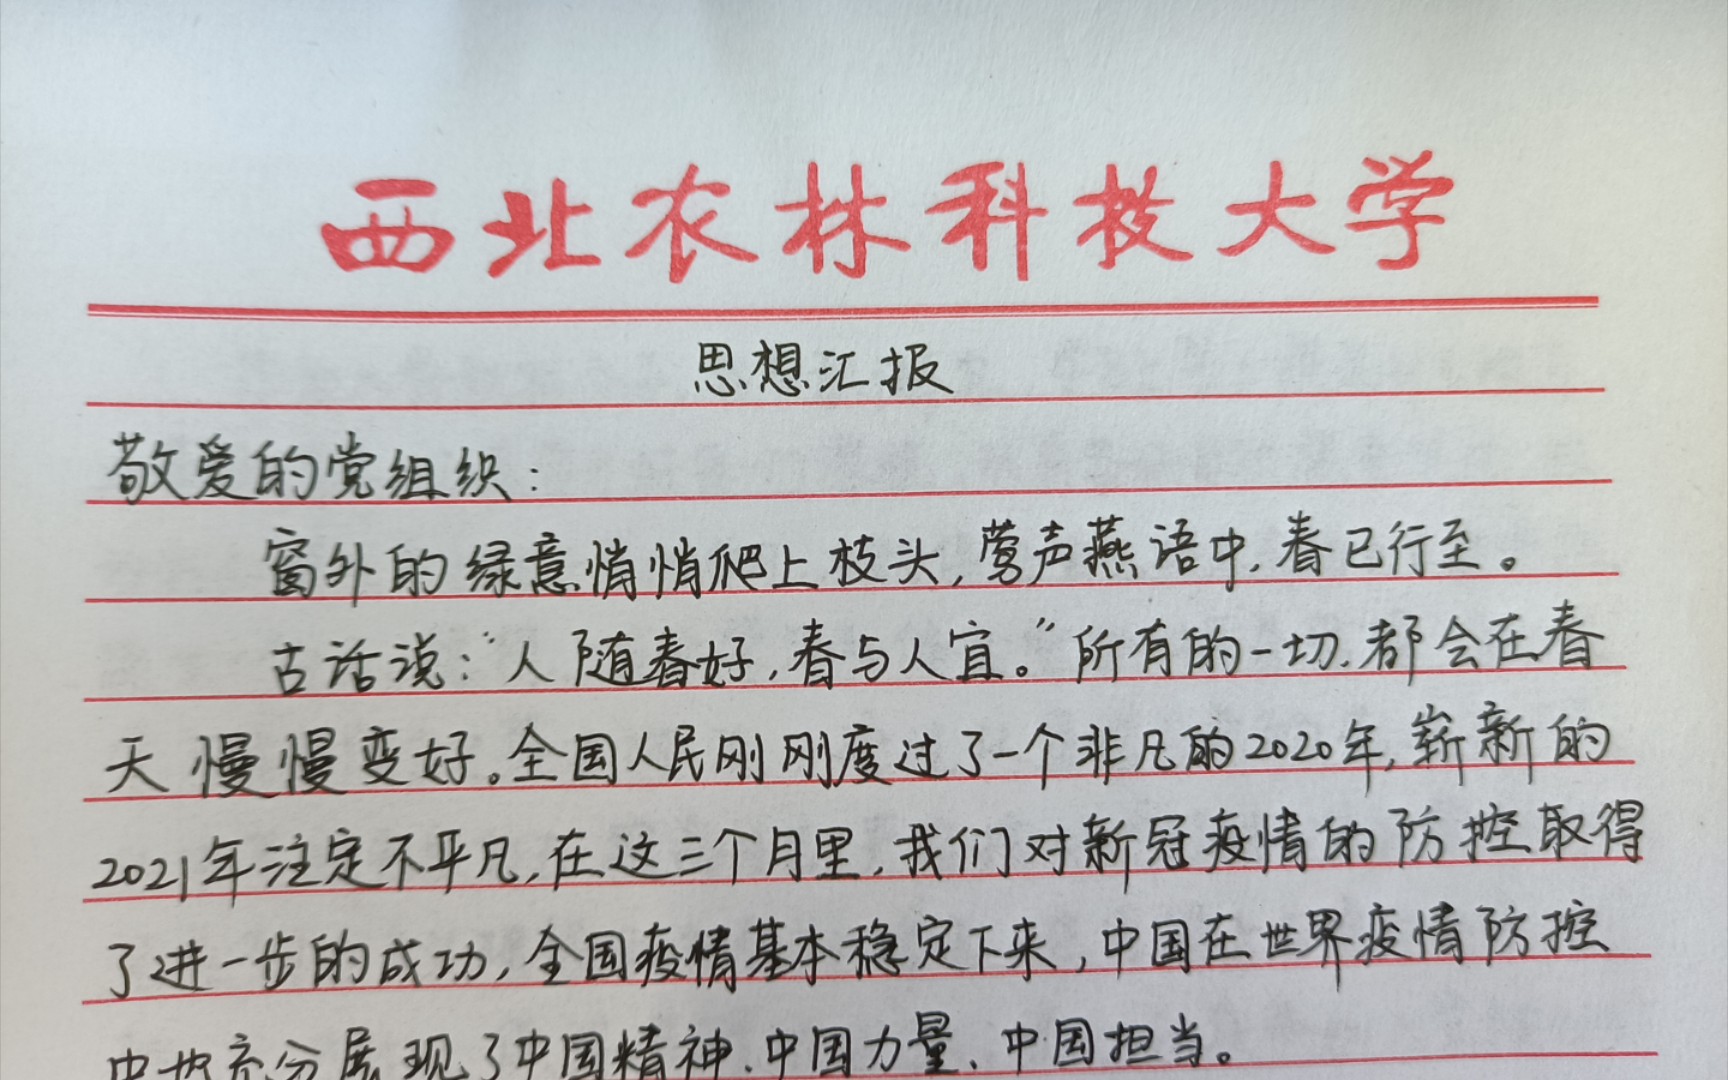 西北农林科技大学
思想汇报
敬爱的党组织：
窗外的绿意悄悄爬上枝头，莺声燕语中，春已行至。
古话说：“人随春好，春与人宜。”所有的一切，都会在春
天慢慢变好。全国人民刚刚度过了一个非凡的2020年，崭新的
2021年注定不平凡，在这三个月里，我们对新冠疫情的防控取得
了进一步的成功，全国疫情基本稳定下来，中国在世界疫情防控
中也充分展现了中国精神、中国力量、中国担当。